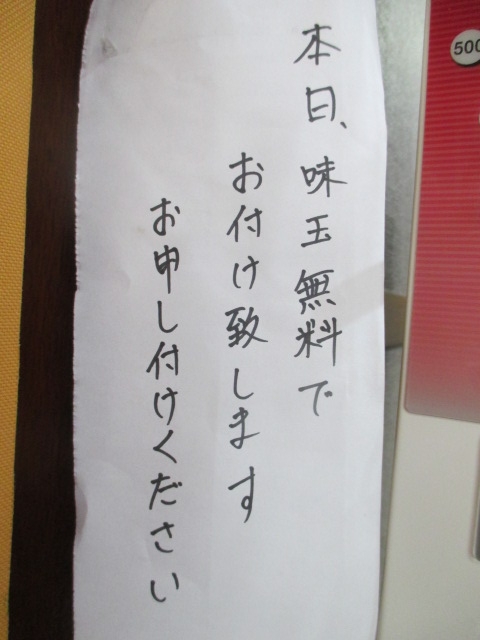 本日、味玉無料で
お付け致します
お申し付けください
500